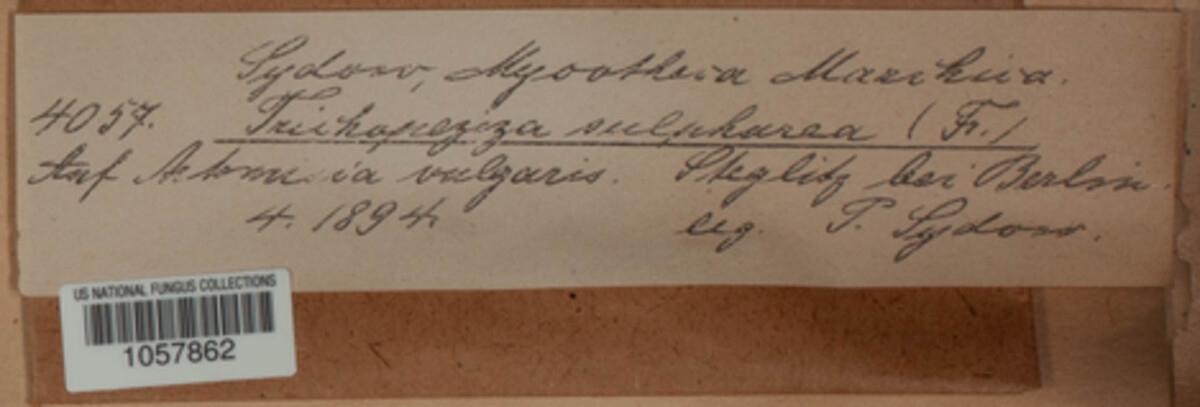 Sydow, Mycotheca Marchica.
4057. Trichopeziza sulphurea (Fr.)
Auf Artemisia vulgaris. Steglitz bei Berlin.
4. 1894. leg. P. Sydow.
US NATIONAL FUNGUS COLLECTIONS
1057862